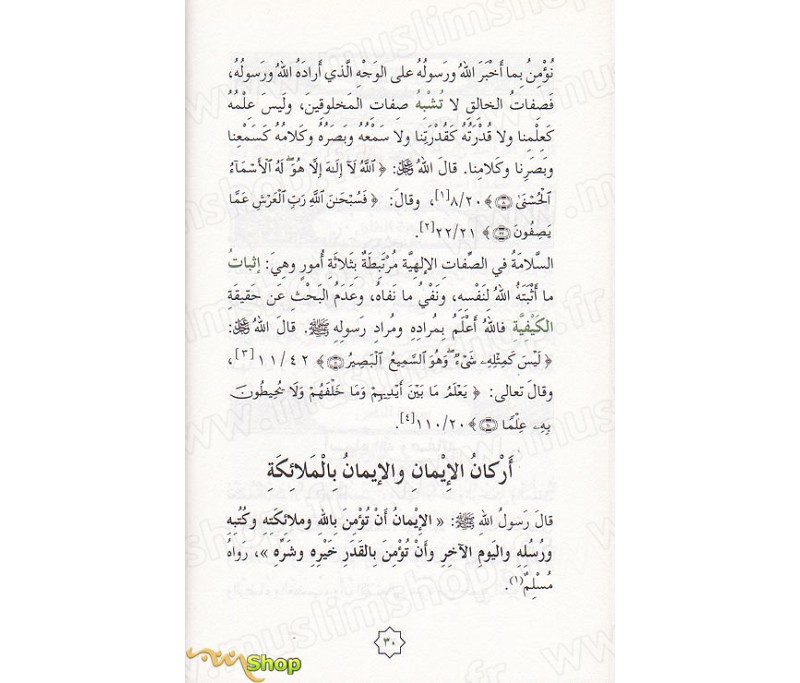 نُؤْمِنُ بِما أَخْبَرَ اللهُ ورَسولُهُ على الوَجْهِ الَّذي أَرادَهُ اللهُ ورَسولُهُ،
فَصِفاتُ الخالِقِ لا تُشْبِهُ صِفاتِ المَخلوقينَ، ولَيسَ عِلْمُهُ
كَعِلْمِنا ولا قُدْرَتُهُ كَقُدْرَتِنا ولا سَمْعُهُ وبَصَرُهُ وكَلامُهُ كَسَمْعِنا
وبَصَرِنا وكَلامِنا. قالَ اللهُ ﷿: ﴿ ٱللَّهُ لَآ إِلَٰهَ إِلَّا هُوَۖ لَهُ ٱلْأَسْمَآءُ
ٱلْحُسْنَىٰ ۝٨ ﴾ ٨/٢٠[١]، وقالَ: ﴿ فَسُبْحَٰنَ ٱللَّهِ رَبِّ ٱلْعَرْشِ عَمَّا
يَصِفُونَ ۝٢٢ ﴾ ٢٢/٢١[٢].
السَّلامَةُ في الصِّفاتِ الإلهِيَّة مُرْتَبِطَةٌ بِثَلاثَةِ أُمورٍ وهِيَ: إثباتُ
ما أَثْبَتَهُ اللهُ لِنَفْسِهِ، ونَفْيُ ما نَفاهُ، وعَدَمُ البَحْثِ عَن حَقيقَةِ
الكَيْفِيَّةِ فاللهُ أَعْلَمُ بِمُرادِهِ ومُرادِ رَسولِهِ ﷺ. قالَ اللهُ ﷿:
﴿ لَيْسَ كَمِثْلِهِۦ شَىْءٌۖ وَهُوَ ٱلسَّمِيعُ ٱلْبَصِيرُ ۝١١ ﴾ ١١/٤٢[٣]،
وقالَ تعالى: ﴿ يَعْلَمُ مَا بَيْنَ أَيْدِيهِمْ وَمَا خَلْفَهُمْ وَلَا يُحِيطُونَ
بِهِۦ عِلْمًا ۝١١٠ ﴾ ١١٠/٢٠[٤].
أَرْكانُ الإيْمانِ والإيمانُ بِالْمَلائِكَةِ
قالَ رَسولُ اللهِ ﷺ: « الإيْمانُ أَنْ تُؤْمِنَ بِاللهِ وملائكَتِهِ وكُتُبِهِ
ورُسُلِهِ واليَومِ الآخِرِ وأَنْ تُؤْمِنَ بِالقَدَرِ خَيْرِهِ وشَرِّهِ »، رَواهُ
مُسْلِمٌ(١).
٣٠
Shop
www.muslimshop.fr